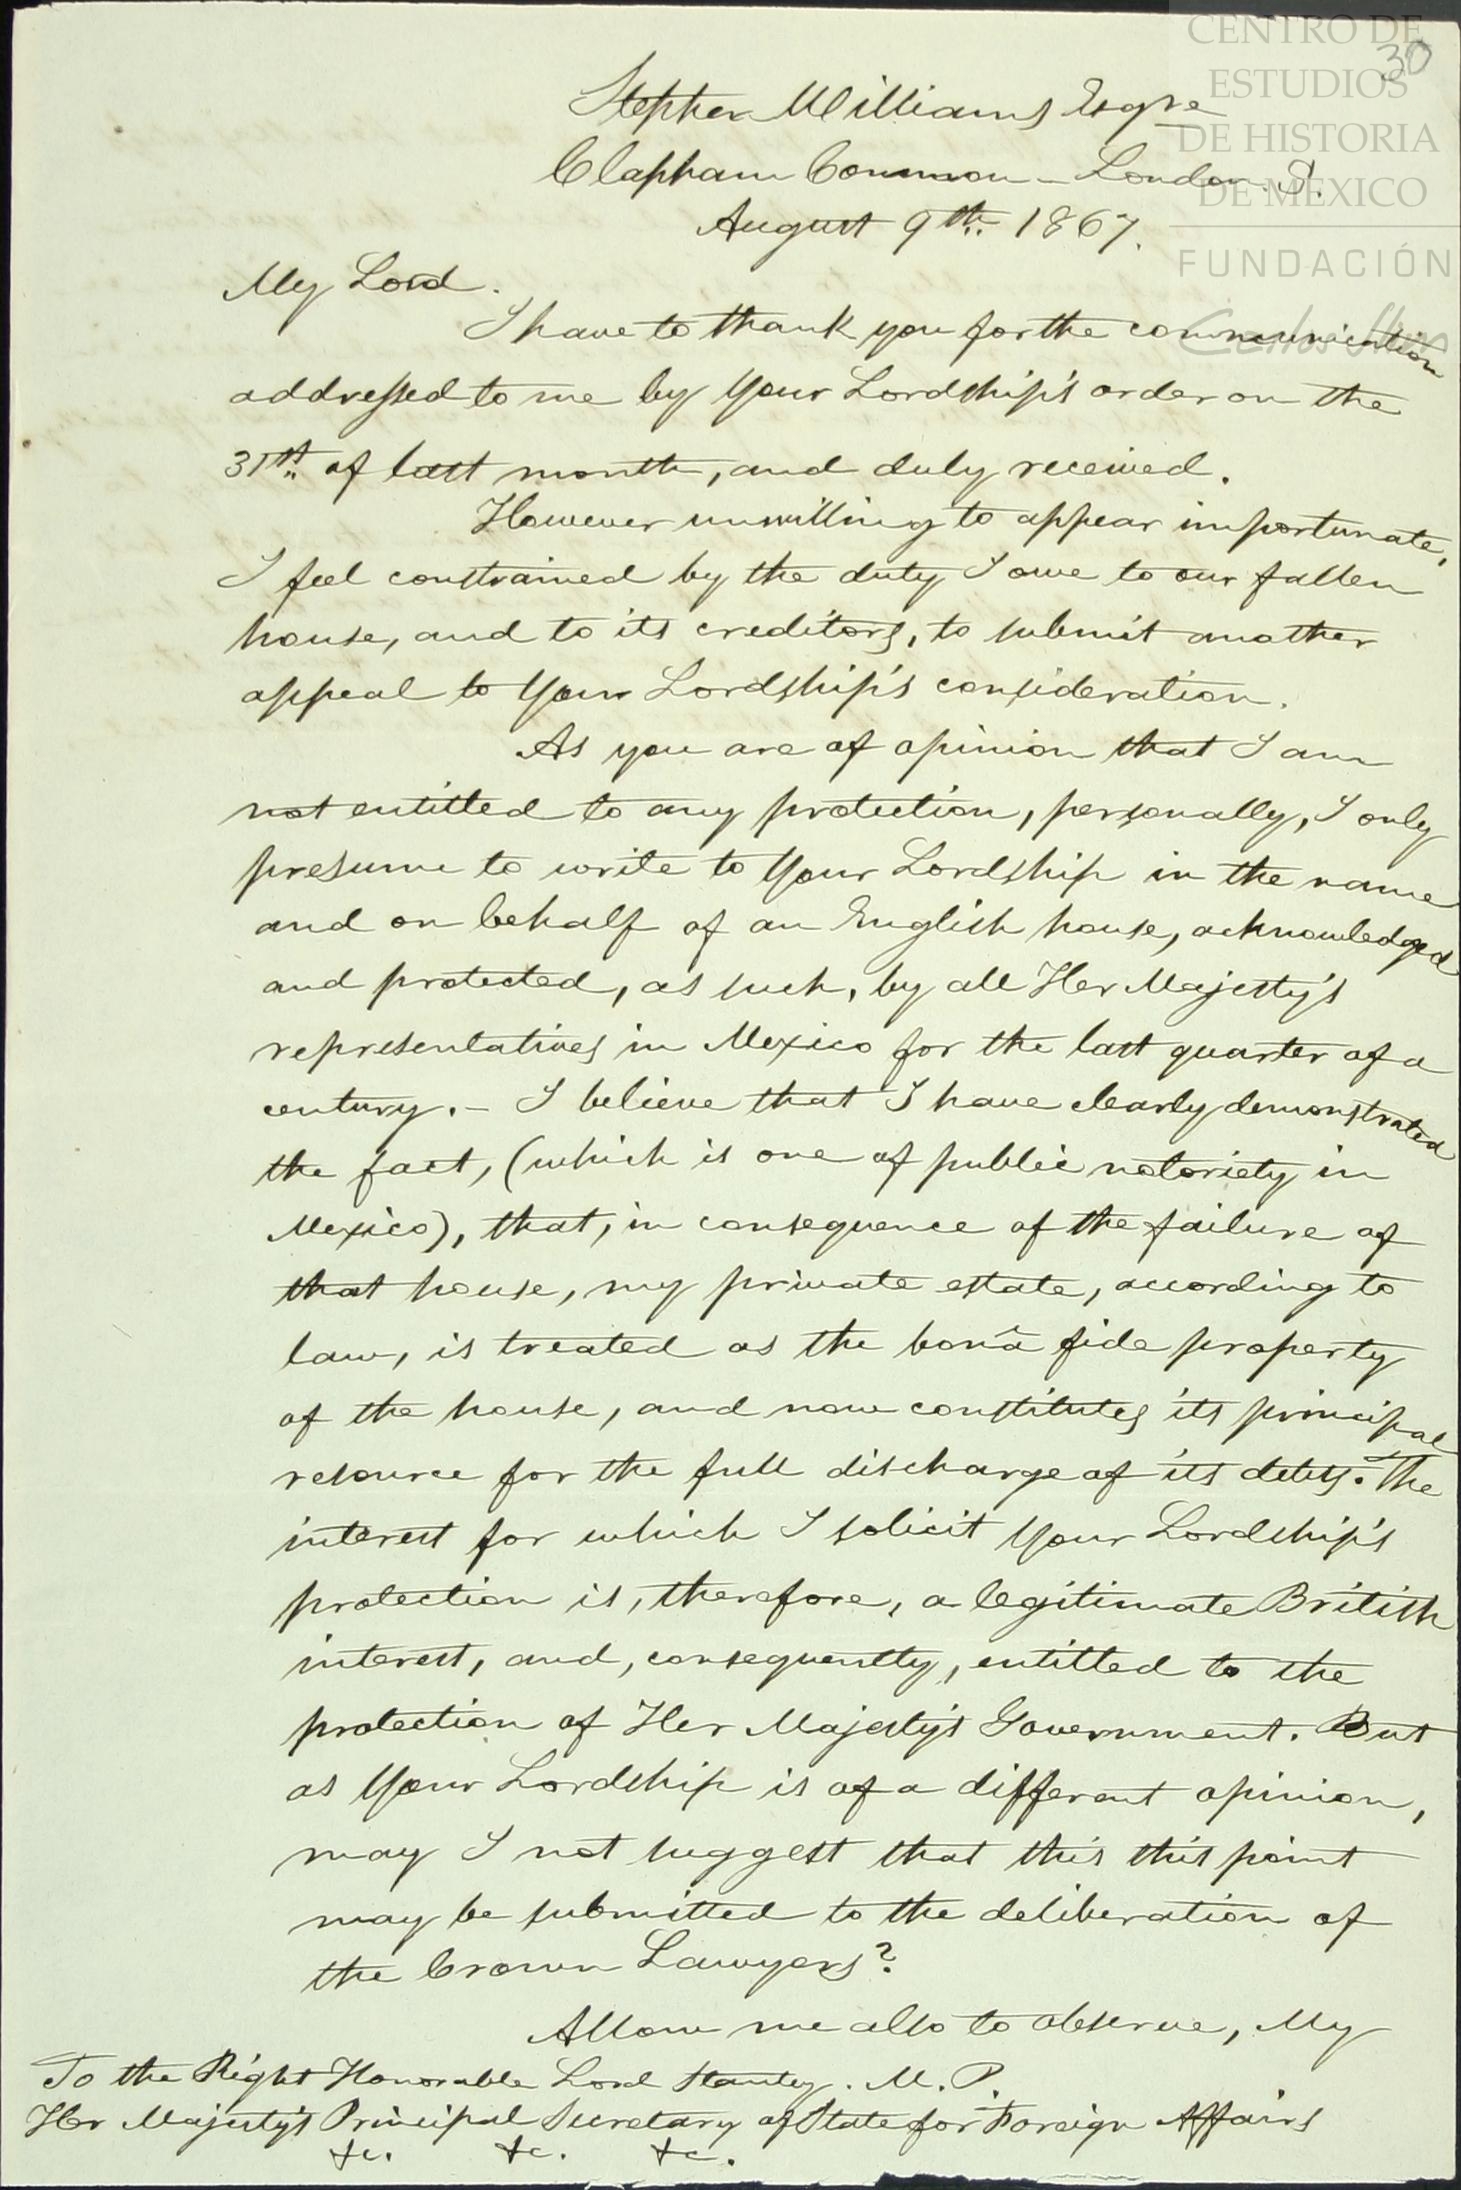 CENTRO DE
ESTUDIOS
DE HISTORIA
DE MÉXICO
FUNDACIÓN
Carlos Slim
30
Stephen Williams Esqre
Clapham Common - London. S.
August 9th. 1867.
My Lord.
I have to thank you for the communication
addressed to me by Your Lordship's order on the
31st. of last month, and duly received.
However unwilling to appear importunate,
I feel constrained by the duty I owe to our fallen
house, and to its creditors, to submit another
appeal to Your Lordship's consideration.
As you are of opinion that I am
not entitled to any protection, personally, I only
presume to write to Your Lordship in the name
and on behalf of an English house, acknowledged
and protected, as such, by all Her Majesty's
representatives in Mexico for the last quarter of a
century. - I believe that I have clearly demonstrated
the fact, (which is one of public notoriety in
Mexico), that, in consequence of the failure of
that house, my private estate, according to
law, is treated as the bonâ fide property
of the house, and now constitutes its principal
resource for the full discharge of its debts. The
interest for which I solicit Your Lordship's
protection is, therefore, a legitimate British
interest, and, consequently, entitled to the
protection of Her Majesty's Government. But
as Your Lordship is of a different opinion,
may I not suggest that this this point
may be submitted to the deliberation of
the Crown Lawyers?
Allow me also to observe, My
To the Right Honorable Lord Stanley. M. P.
Her Majesty's Principal Secretary of State for Foreign Affairs
&c. &c. &c.